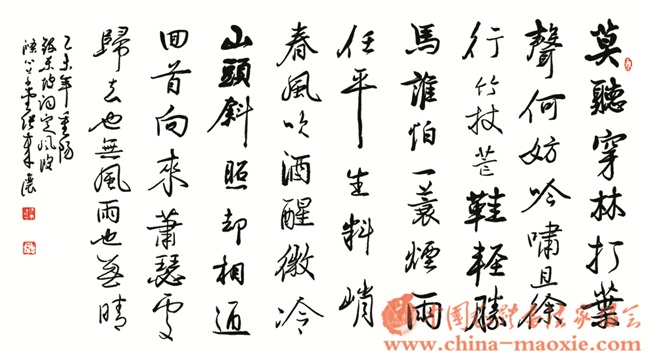 莫聽穿林打葉
聲何妨吟嘯且徐
行竹杖芒鞋輕勝
馬誰怕一蓑煙雨
任平生料峭
春風吹酒醒微冷
山頭斜照却相迎
回首向來蕭瑟處
歸去也無風雨也無晴
乙未年重陽
錄東坡詞定風波
www.china-maoxie.com